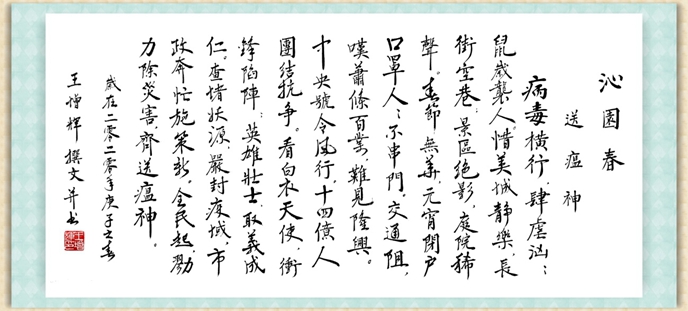 沁園春
送瘟神
病毒橫行，肆虐汹：
鼠歲襲人惜美城靜樂，長
街空巷；景區絕影，庭院稀
聲。春節無華，元宵閉戶
口罩人：不串門，交通阻，
嘆蕭條百業，難見隆興。
中央號令風行，十四億人
團結抗争。看白衣天使，衝
鋒陷陣；英雄壯士，取義成
仁。查堵妖源，嚴封疫域，市
政奔忙施策新，全民起，勠
力除災害，齊送瘟神。
歲在二零二零年庚子之春
王增輝撰文并书